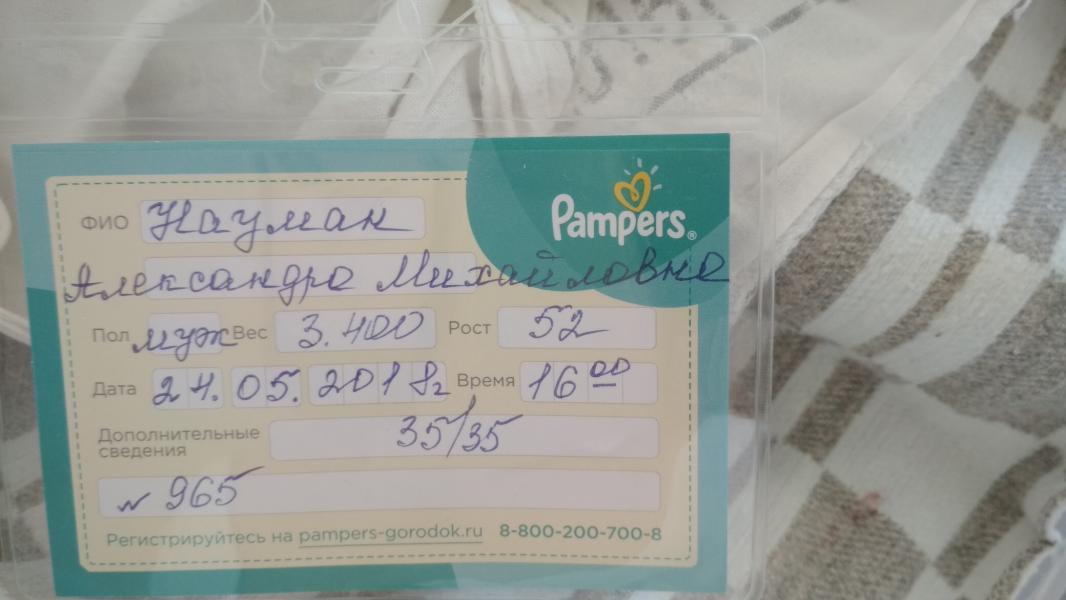 Pampers®
ФИО Науман
Александра Михайловна
Пол муж Вес 3.400 Рост 52
Дата 24.05.2018г Время 16⁰⁰
Дополнительные сведения 35/35
№ 965
Регистрируйтесь на pampers-gorodok.ru 8-800-200-700-8